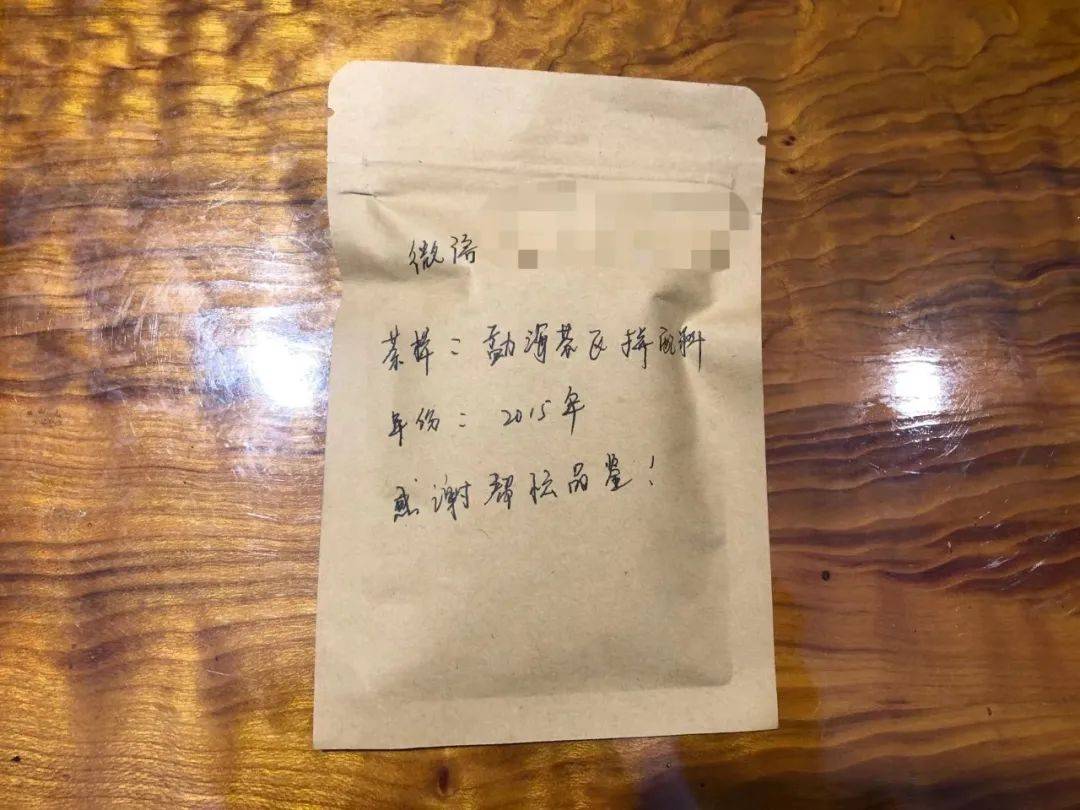 微信
茶样：勐海茶区拼配料
年份：2015年
感谢帮忙品鉴！